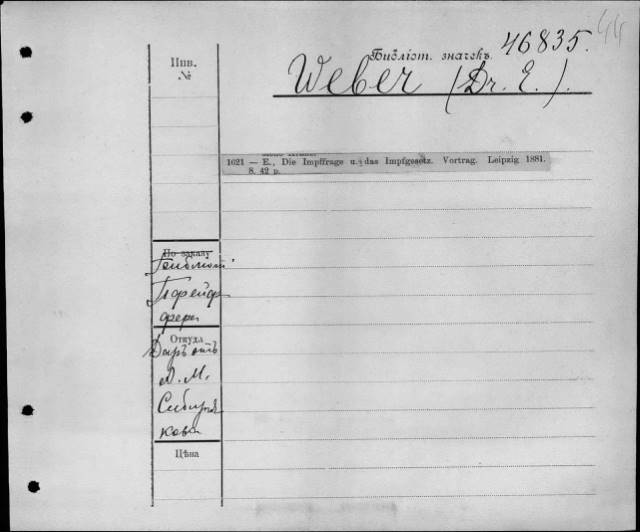 44
46835.
Инв.
№
Библіот. значекъ.
Weber (Dr. E.).
1621 — E., Die Impffrage u. das Impfgesetz. Vortrag. Leipzig 1881.
8. 42 p.
По заказу
Пфейф
фера
Откуда
Даръ отъ
А. М.
Сибиря
кова
Цѣна